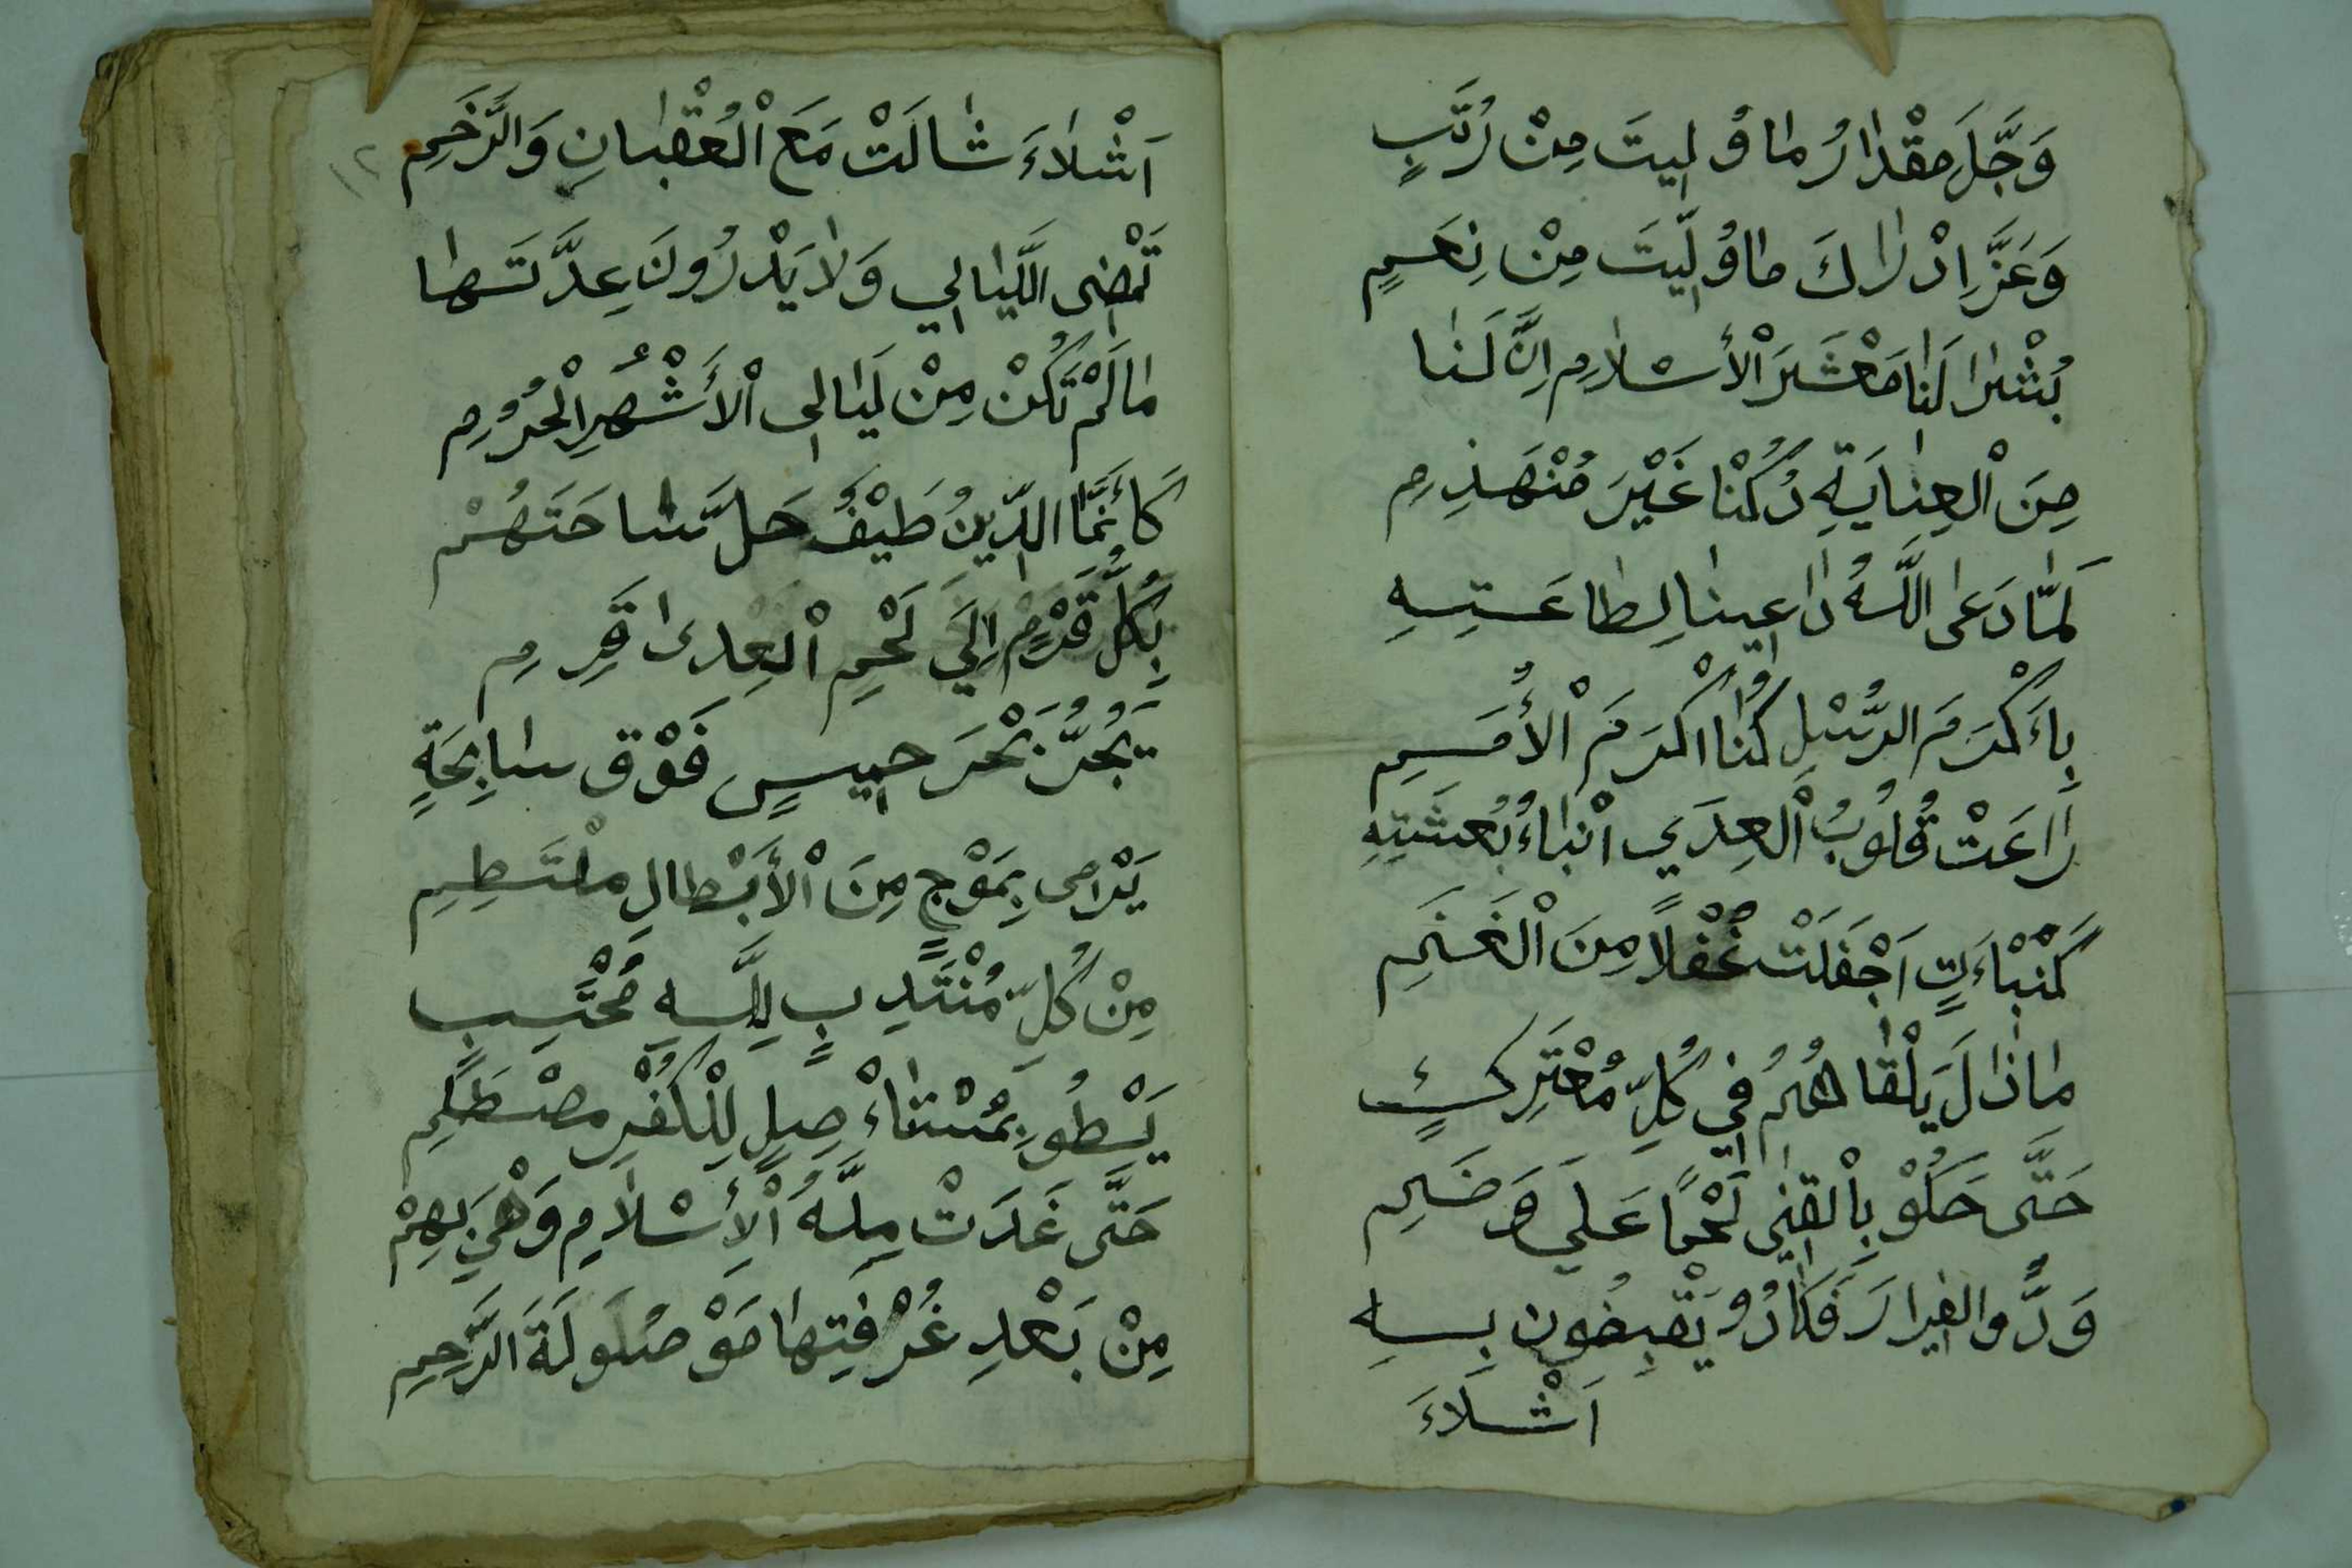 وَجَّلَ مِقْدَارُ مَا وُلِيتَ مِنْ رُتَبٍ
وَعَزَّ اِدْرَاكَ مَا وُلِّيتَ مِنْ نِعَمٍ
بُشْرَا لَنَا مَعْشَرَ اْلأسْلَامِ اِنَّ لَنَا
مِنَ اْلعِنَايَةِ رُكْنًا غَيْرَ مُنْهَدِمِ
لَمَّا دَعَى اللَّهُ دَاعِينَا لِطَاعَتِهِ
بِاَكْرَمَ الرُّسْلِ كُنَّا اَكْرَمَ اْلأُمَمِ
رَاعَتْ قُلُوبُ اْلعِدَي اَنْبَاءُ بُعْثَتِهِ
كَنْبَاءَتٍ اَجْفَلَتْ غُفْلًا مِنَ اْلغَنَمِ
مَاذَالَ يَلْقَاهُمُ فِي كُلِّ مُعْتَرِكٍ
حَتَّى حَكَوْ بِاْلقِنَى لَحْمًا عَلَي وَضَمِ
وَدُّوا الفِرَارَ فَكَادُو يَقْبِضُونَ بِهِ
اَشْلَاءَ
١٢
اَشْلَاءَ شَالَتْ مَعَ اْلعُقْبَانِ وَالرَّخَمِ
تَمْضِى اللَّيَالِي وَلَا يَدْرُونَ عِدَّتَهَا
مَالَمْ تَكُنْ مِنْ لَيَالِى اْلأَشْهُرِ اْلحُرُمِ
كَأَنَّمَا الدِّينُ طَيْفُ حَلَّ سَاحَتَهُمْ
بِكُلِّ قَرْمٍ اِلَي لَحْمِ اْلعِدَى قَرِمِ
يَجُرُّ بَحْرَ حِيسٍ فَوْقَ سَابِحَةٍ
يَرْامِى بِمَوْجٍ مِنَ اْلأَبْطَالِ مْلتَطِمِ
مِنْ كُلِّ مُنْتَدِبٍ لِلَّهِ مُحْتَسِبٍ
يَسْطُو بِمُسْتَاءْصِلٍ لِلْكُفْرِ مصْطَلِمِ
حَتَّى غَدَتْ مِلَّهُ اْلأِسْلَامِ وَهْيَ بِهِمْ
مِنْ بَعْدِ غُرْفَتِهَا مَوْصُولَةَ الرَّحِمِ